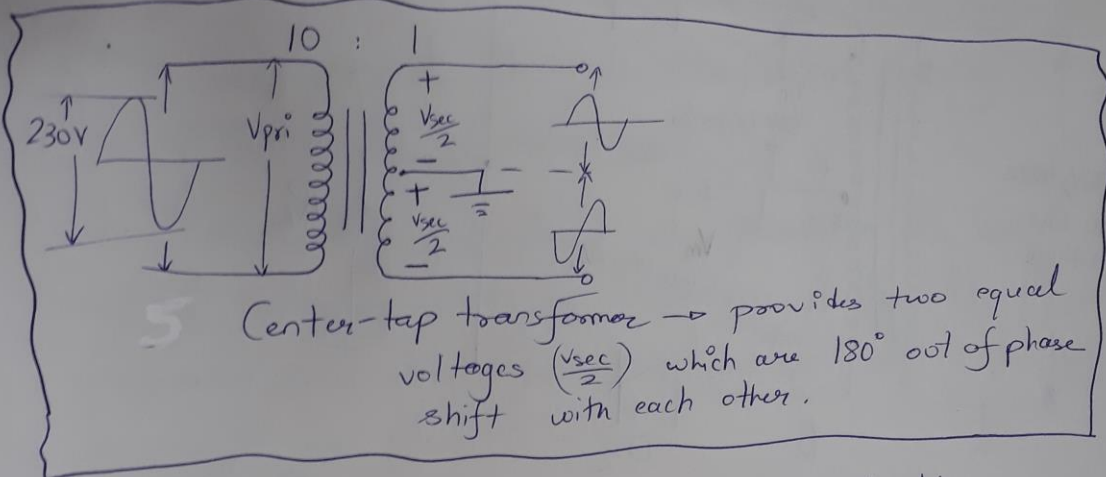 10 : 1
230V
Vpri
+
Vsec/2
-
+
Vsec/2
-
Center-tap transformer → provides two equal
voltages (Vsec/2) which are 180° out of phase
shift with each other.